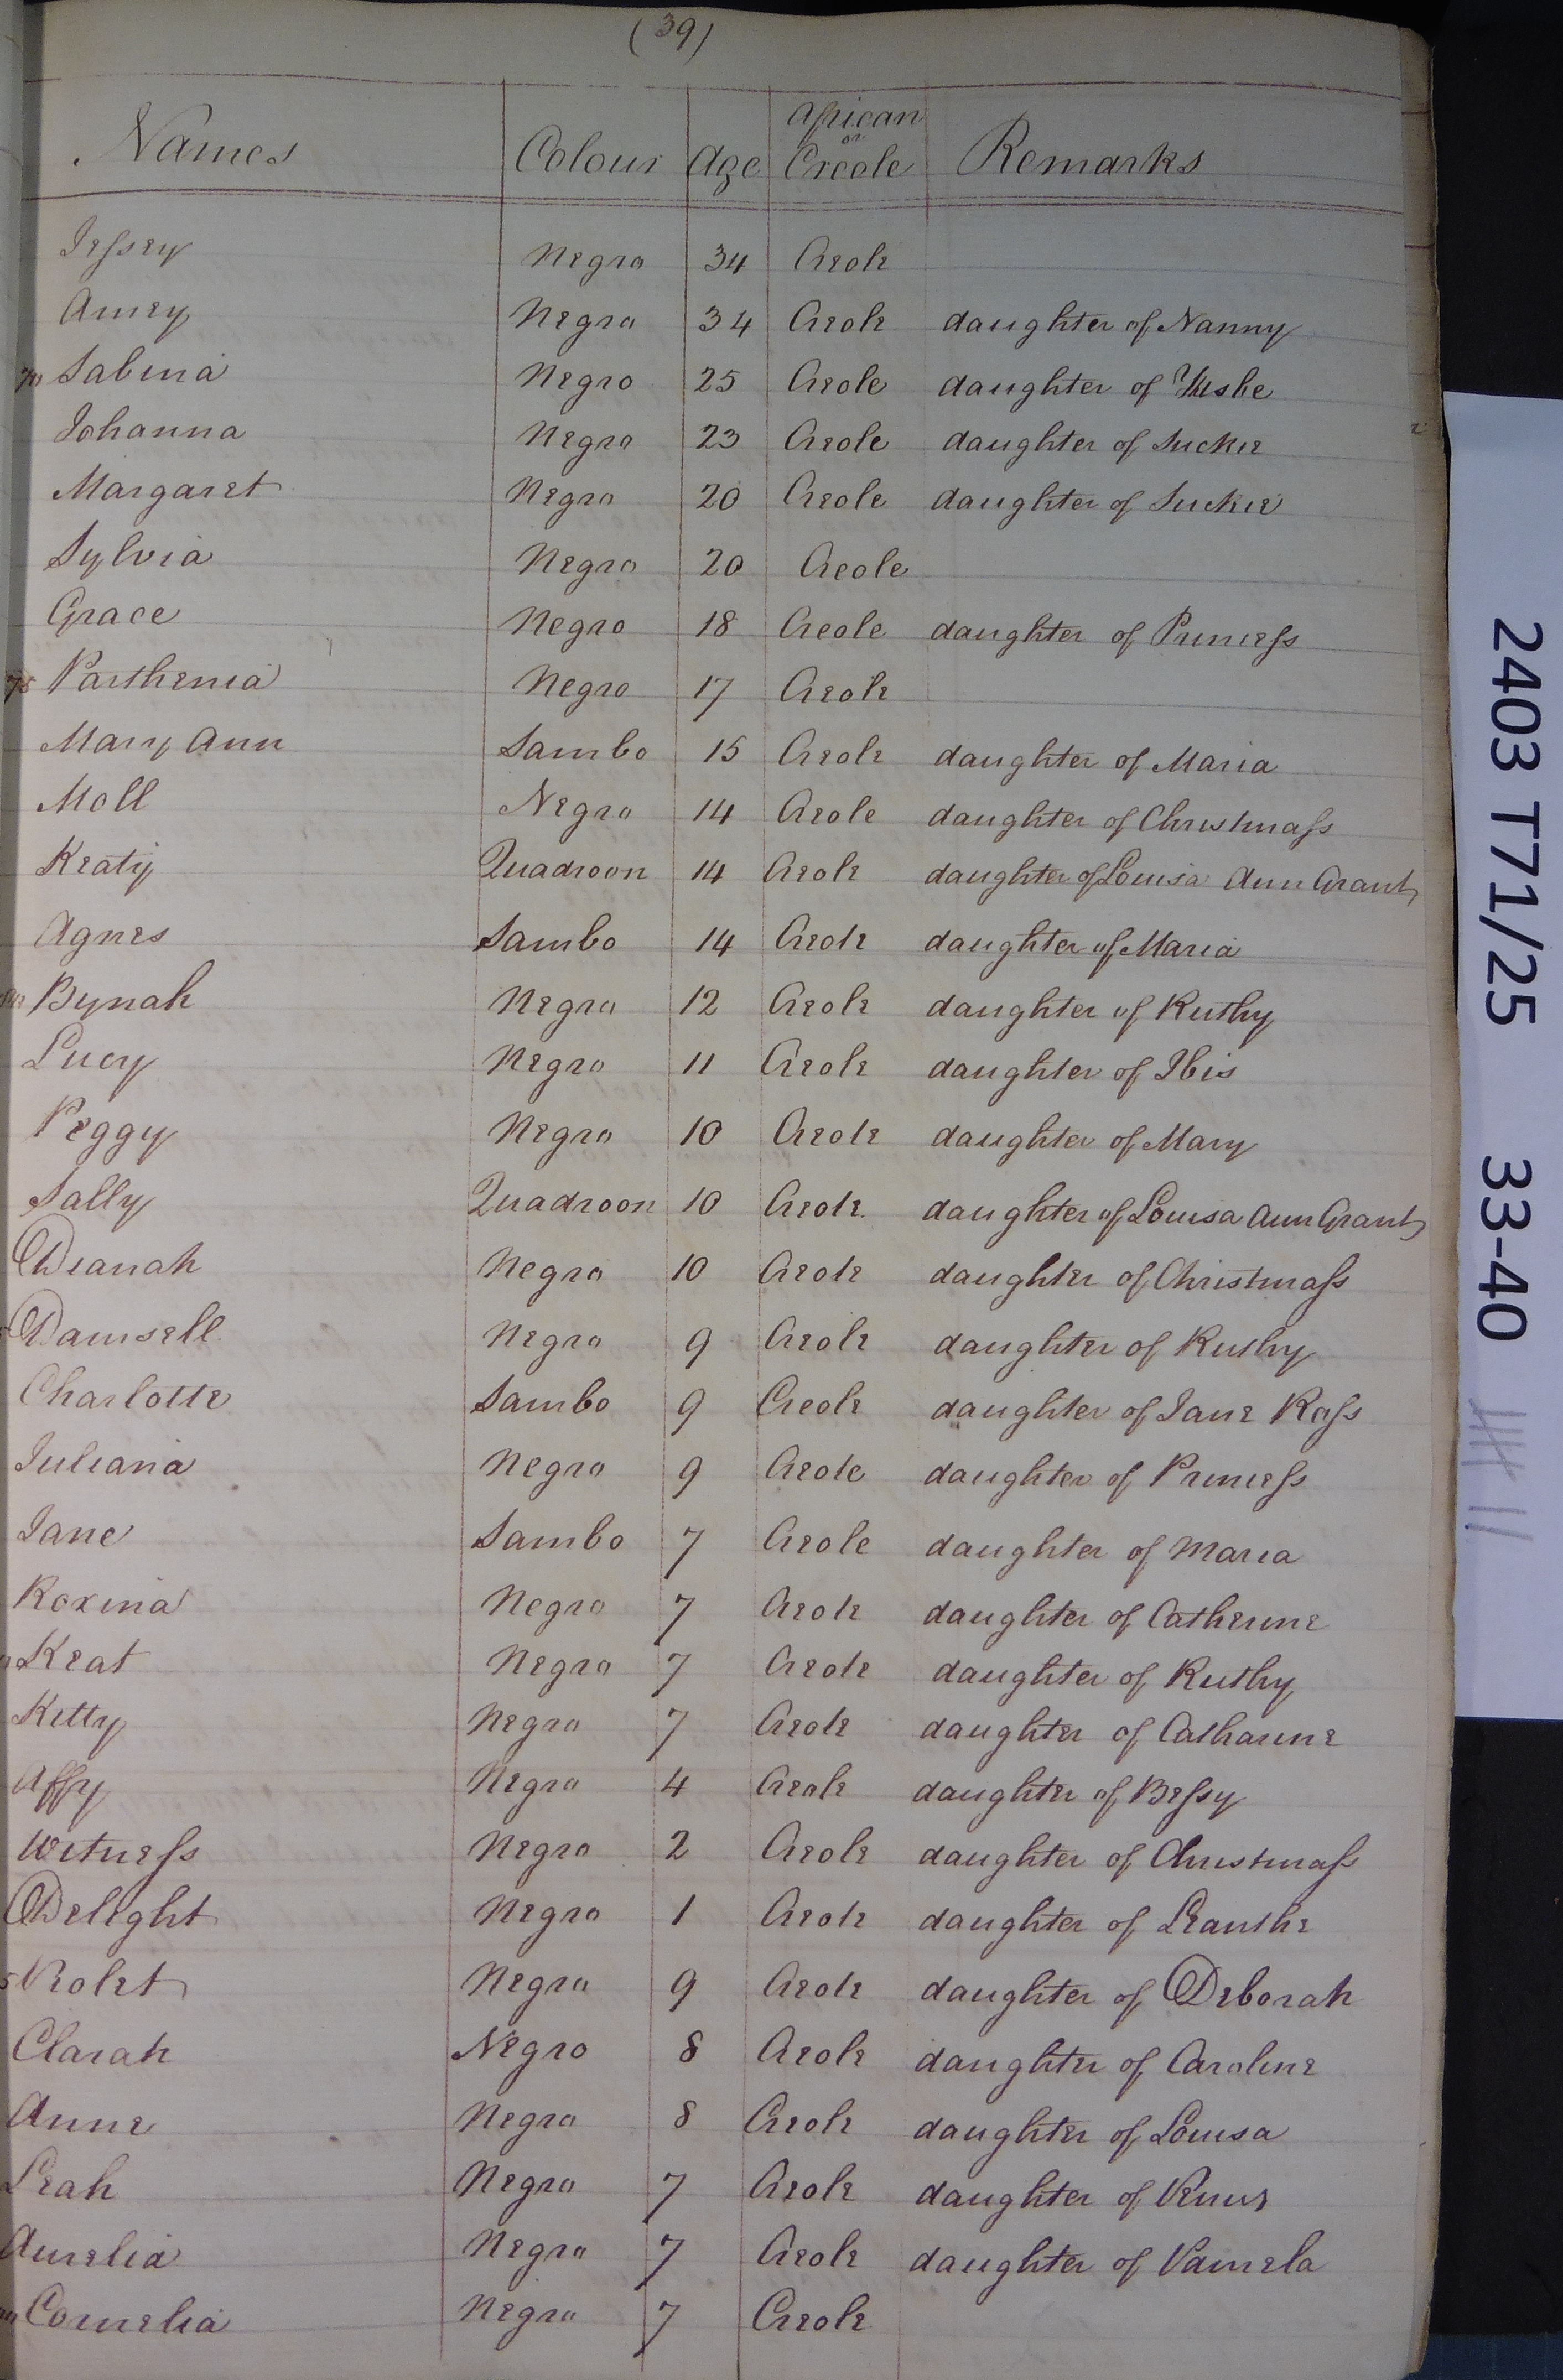 (39)
Names Colour Age African or Creole Remarks
Jessey Negro 34 Creole
Amey Negro 34 Creole daughter of Nanny
70 Sabina Negro 25 Creole daughter of
Johanna Negro 23 Creole daughter of Suckie
Margaret Negro 20 Creole daughter of Suckie
Sylvia Negro 20 Creole
Grace Negro 18 Creole daughter of Princess
75 Parthenia Negro 17 Creole
Mary Ann Sambo 15 Creole daughter of Maria
Moll Negro 14 Creole daughter of Christmass
Keaty Quadroon 14 Creole daughter of Louisa Ann Grant
Agnes Sambo 14 Creole daughter of Maria
Bynah Negro 12 Creole daughter of Ruthy
Lucy Negro 11 Creole daughter of Ibis
Peggy Negro 10 Creole daughter of Mary
Sally Quadroon 10 Creole daughter of Louisa Ann Grant
Dianah Negro 10 Creole daughter of Christmass
Damsell Negro 9 Creole daughter of Ruthy
Charlotte Sambo 9 Creole daughter of Jane Ross
Juliana Negro 9 Creole daughter of Princess
Jane Sambo 7 Creole daughter of Maria
Roxina Negro 7 Creole daughter of Catherine
Keat Negro 7 Creole daughter of Ruthy
Kitty Negro 7 Creole daughter of Catharine
Affy Negro 4 Creole daughter of Bessy
Witness Negro 2 Creole daughter of Christmass
Delight Negro 1 Creole daughter of Leanthe
Violet Negro 9 Creole daughter of Deborah
Clarah Negro 8 Creole daughter of Caroline
Anne Negro 8 Creole daughter of Louisa
Leah Negro 7 Creole daughter of Venus
Aurelia Negro 7 Creole daughter of Pamela
Cornelia Negro 7 Creole
2403 T71/25 33-40